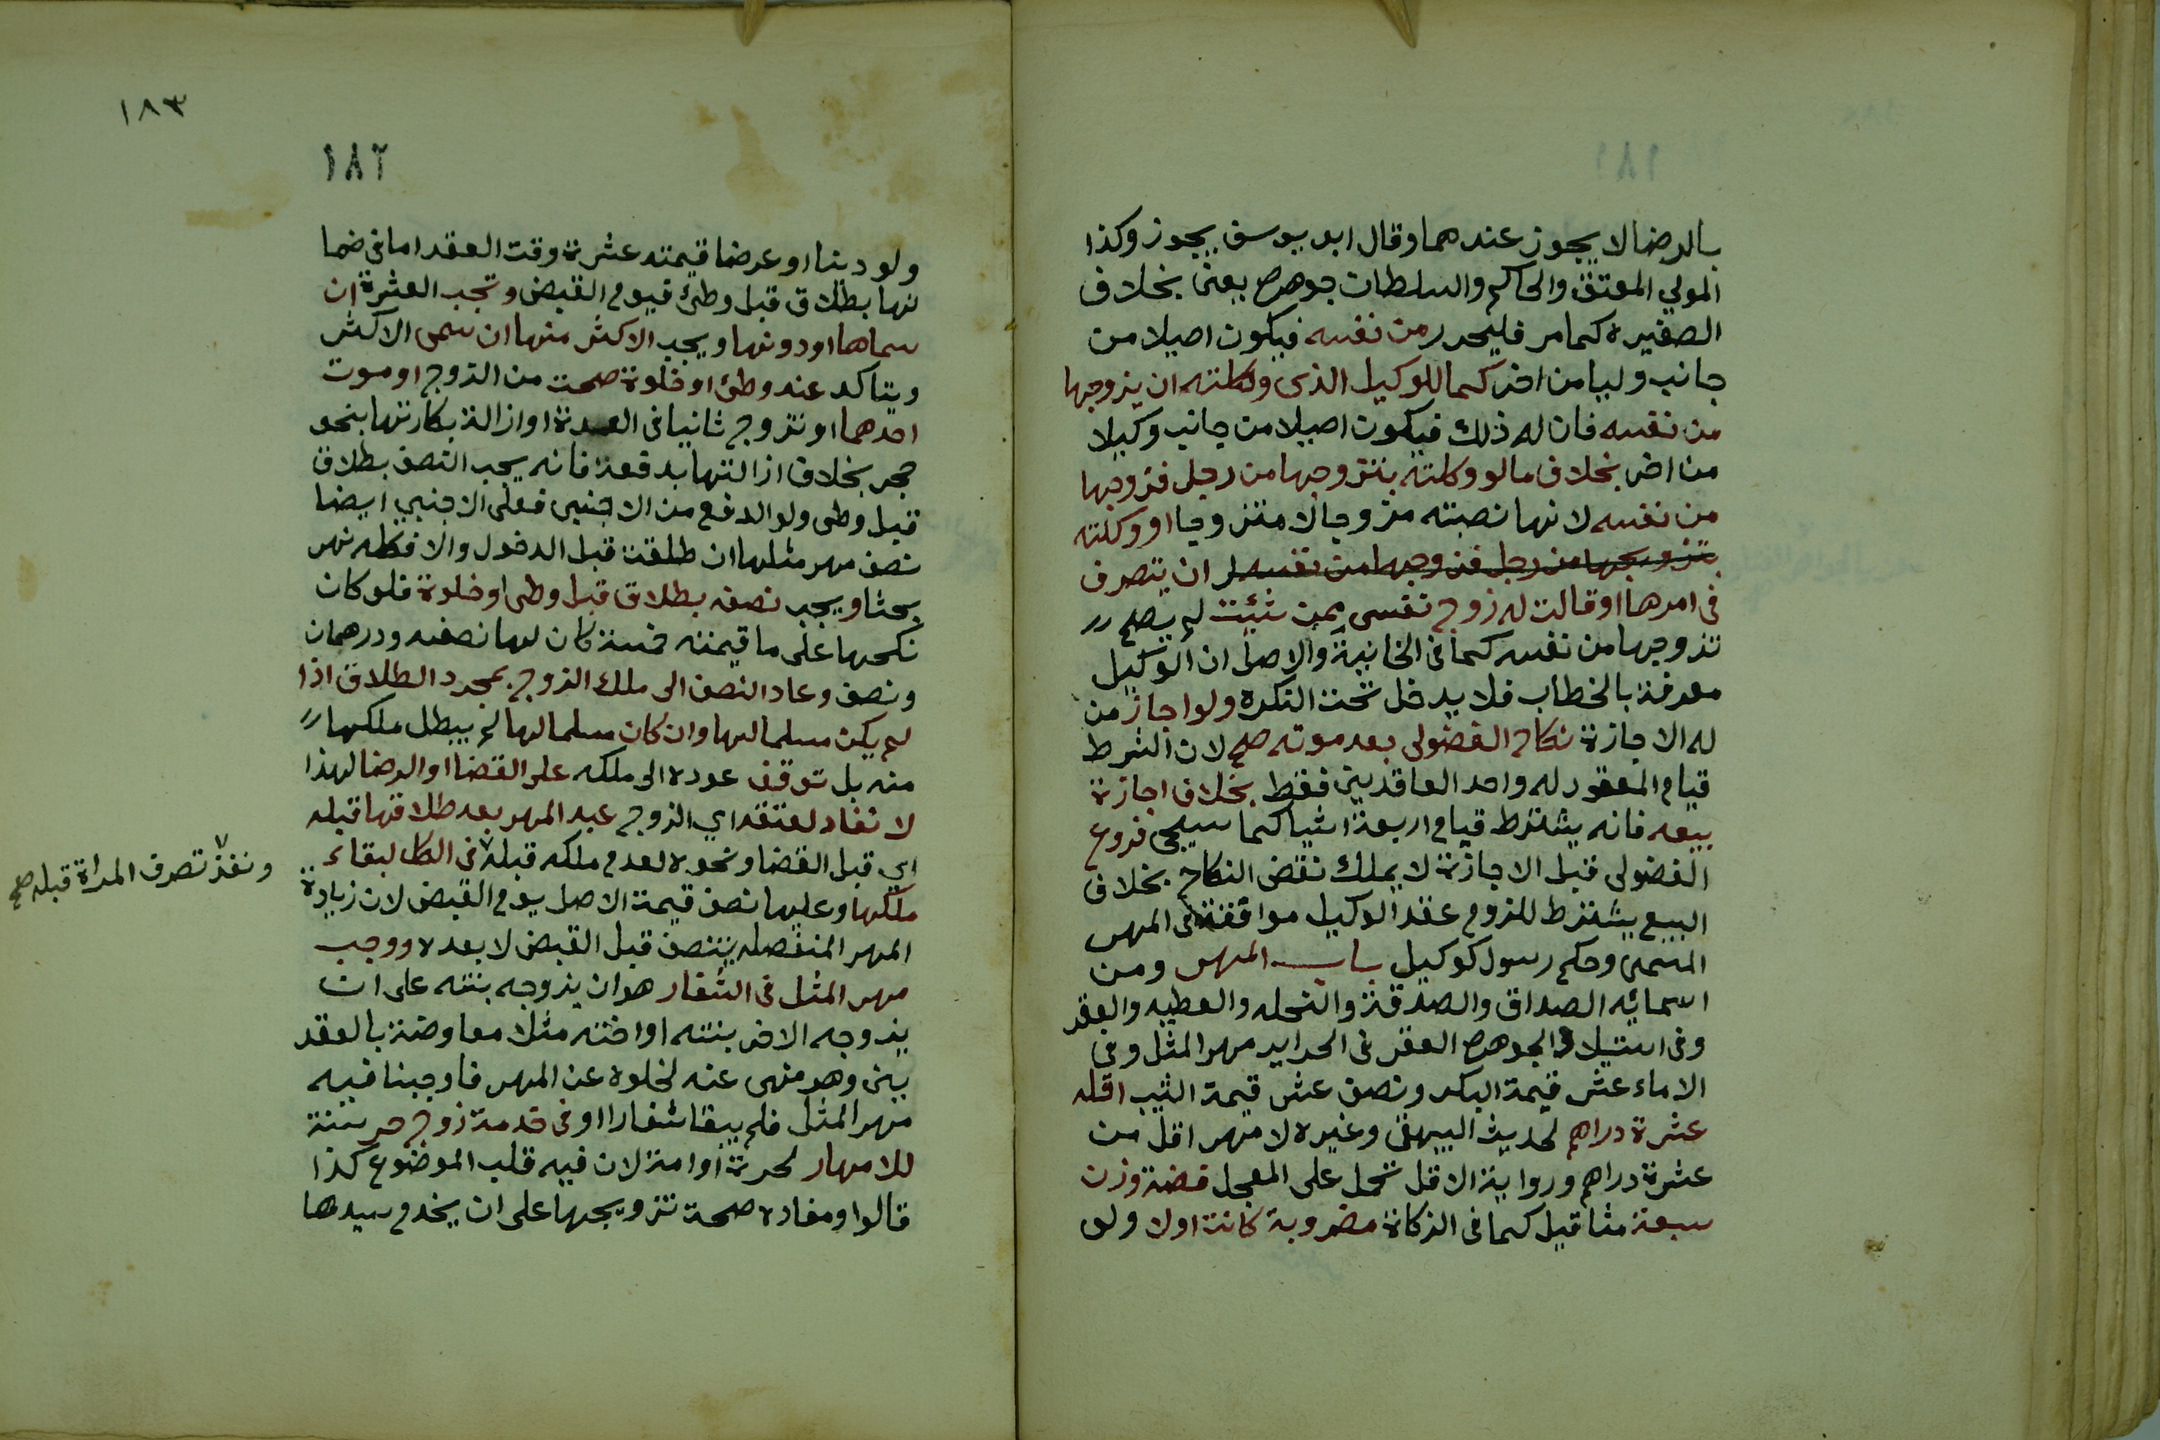 بالرضا لا يجوز عندهما وقال ابو يوسف يجوز وكذا
المولي المعتق والحاكم والسلطان جوهرة يعنى بخلاف
الصغيرة كما مر فليحرر من نفسه فيكون اصيلا من
جانب وليا من اخر كما للوكيل الذى وكلته ان يزوجها
من نفسه فان له ذلك فيكون اصيلا من جانب وكيلا
من اخر بخلاف مالو وكلته بتزوجها من رجل فزوجها
من نفسه لانها نصبته مزوجا لا متزوجا او وكلته
بتزويجها من رجل فزوجها من نفسه ان يتصرف
فى امرها او قالت له زوج نفسى ممن شئت لم يصح
تزوجها من نفسه كما فى الخانية والاصل ان الوكيل
معرفة بالخطاب فلا يدخل تحت النكرة ولو اجاز من
له الاجازة نكاح الفضولى بعد موته صح لان الشرط
قيام المعقود له واحد العاقدين فقط بخلاف اجازة
بيعه فانه يشترط قيام اربعة اشيا كما سيجى فروع
الفضولى قبل الاجازة لا يملك نقض النكاح بخلاف
البيع يشترط للزوم عقد الوكيل موافقته فى المهر
المسمى وحكم رسول كوكيل باب المهر ومن
اسمائه الصداق والصدقة والنحله والعطيه والعقر
وفى استيلاد الجوهرة العقر فى الحراير مهر المثل وفى
الاماء عشر قيمة البكر ونصف عشر قيمة الثيب اقله
عشرة دراهم لحديث البيهقى وغيره لا مهر اقل من
عشرة دراهم ورواية الاقل تحمل على المعجل فضة وزن
سبعة مثاقيل كما فى الزكاة مضروبة كانت اولا ولو
١٨٣
١٨٢
ولو دينا او عرضا قيمته عشرة وقت العقد اما فى ضما
نها بطلاق قبل وطئ فيوم القبض وتجب العشرة ان
سماها او دونها ويجب الاكثر منها ان سمى الاكثر
ويتاكد عند وطئ او خلوة صحت من الزوج او موت
احدهما او تزوج ثانيا فى العدة او ازالة بكارتها بنحو
حجر بخلاف ازالتها بدفعة فانه يجب النصف بطلاق
قبل وطى ولو الدفع من الاجنبى فعلى الاجنبي ايضا
نصف مهر مثلها ان طلقت قبل الدخول والا فكله نهر
بحثا ويجب نصفه بطلاق قبل وطى او خلوة فلو كان
نكحها على ما قيمته خمسة كان لها نصفه ودرهمان
ونصف وعاد النصف الى ملك الزوج بمجرد الطلاق اذا
لم يكن مسلما لها وان كان مسلما لها لم يبطل ملكها
منه بل توقف عوده الى ملكه على القضا او الرضا لهذا
لا نفاد لعتقه اي الزوج عبد المهر بعد طلاقها قبله
اي قبل القضا ونحوه لعدم ملكه قبله فى الكل لبقاء
ونفذ تصرف المراة قبله صح
ملكها وعليها نصف قيمة الاصل يوم القبض لان زيادة
المهر المنفصله يتنصف قبل القبض لا بعده ووجب
مهر المثل فى الشغار هو ان يزوجه بنته على ان
يزوجه الاخر بنته او اخته مثلا معاوضة بالعقد
ين وهو منهى عنه لخلوه عن المهر فاوجبنا فيه
مهر المثل فلم يبقا شغارا او فى خدمة زوج حر سنة
للامهار لحرة او امة لان فيه قلب الموضوع كذا
قالوا ومفاده صحة تزويجها على ان يخدم سيدها